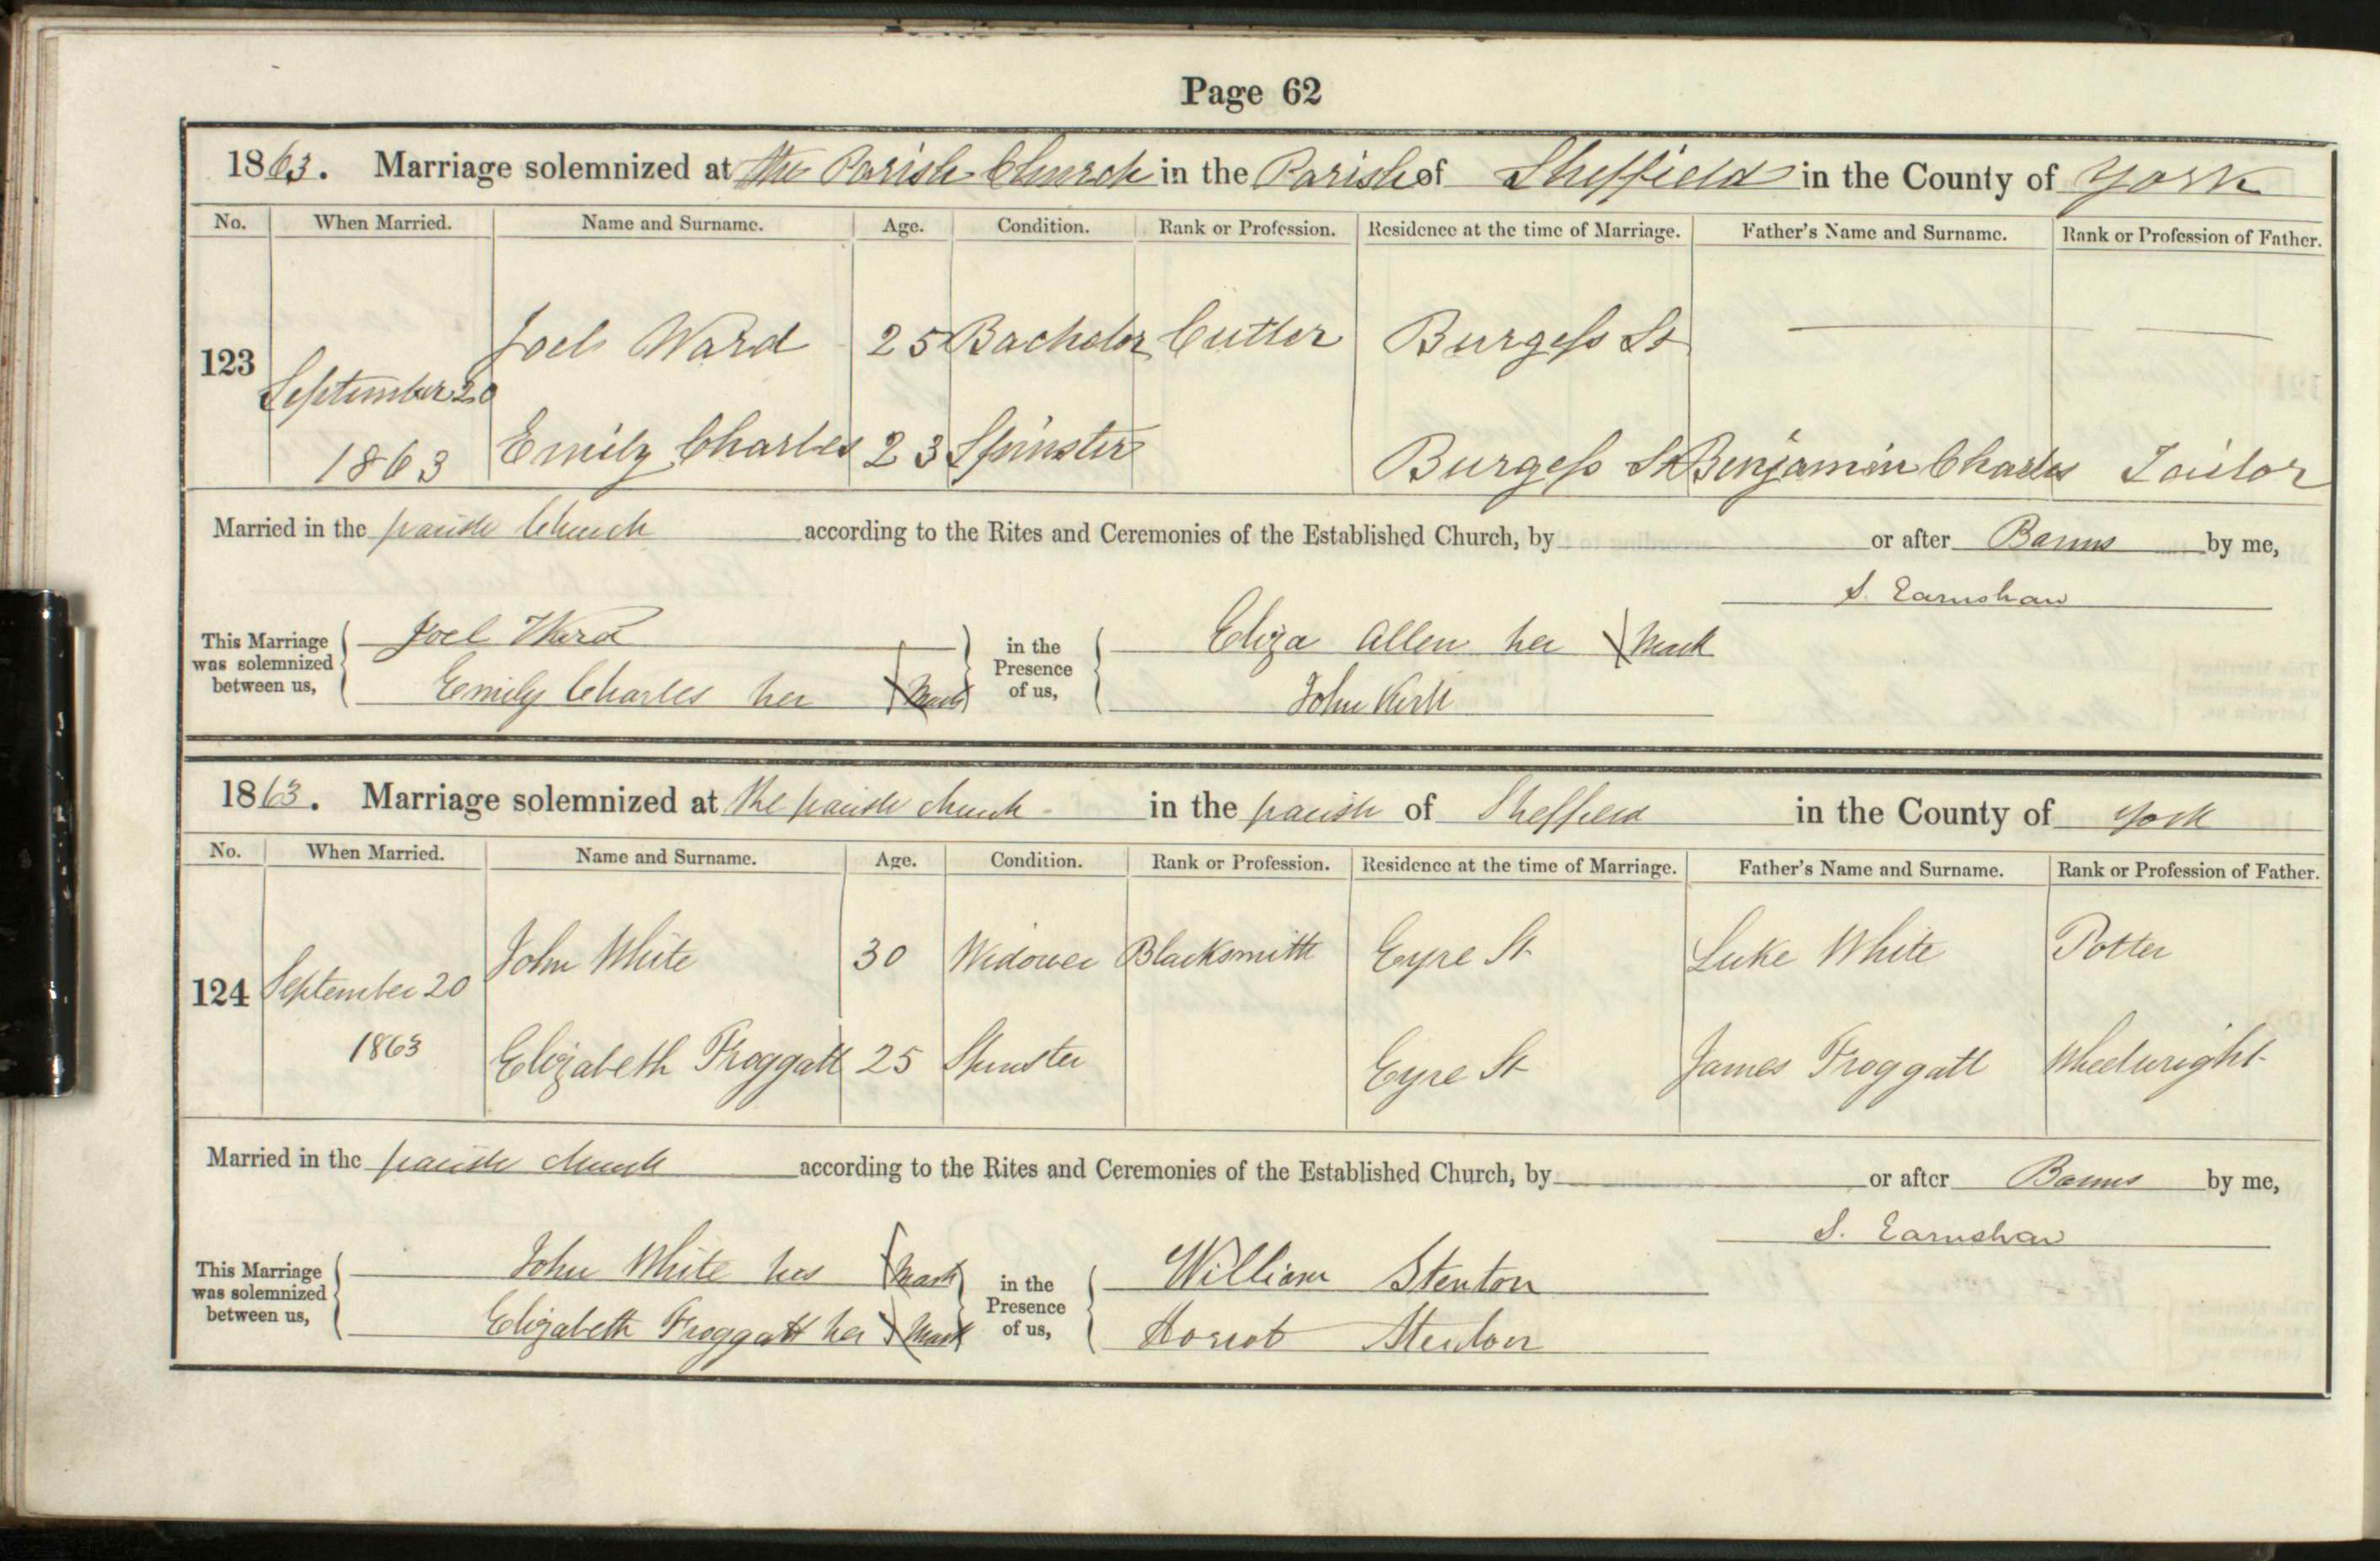 Page 62
1863. Marriage solemnized at the Parish Church in the Parish of Sheffield in the County of York
No. When Married. Name and Surname. Age. Condition. Rank or Profession. Residence at the time of Marriage. Father's Name and Surname. Rank or Profession of Father.
Joel Ward 25 Bachelor Cutler Burgess St — —
123 September 20
1863 Emily Charles 23 Spinster Burgess St Benjamin Charles Tailor
Married in the parish Church according to the Rites and Ceremonies of the Established Church, by or after Banns by me,
S. Earnshaw
This Marriage was solemnized between us, Joel Ward in the Presence of us, Eliza Allen her X Mark
Emily Charles her X Mark John Kirk
1863. Marriage solemnized at the parish church in the parish of Sheffield in the County of York
No. When Married. Name and Surname. Age. Condition. Rank or Profession. Residence at the time of Marriage. Father's Name and Surname. Rank or Profession of Father.
John White 30 Widower Blacksmith Eyre St Luke White Potter
124 September 20
1863 Elizabeth Froggatt 25 Spinster Eyre St James Froggatt Wheelwright
Married in the parish church according to the Rites and Ceremonies of the Established Church, by or after Banns by me,
S. Earnshaw
This Marriage was solemnized between us, John White his X Mark in the Presence of us, William Stenton
Elizabeth Froggatt her X Mark Stenton